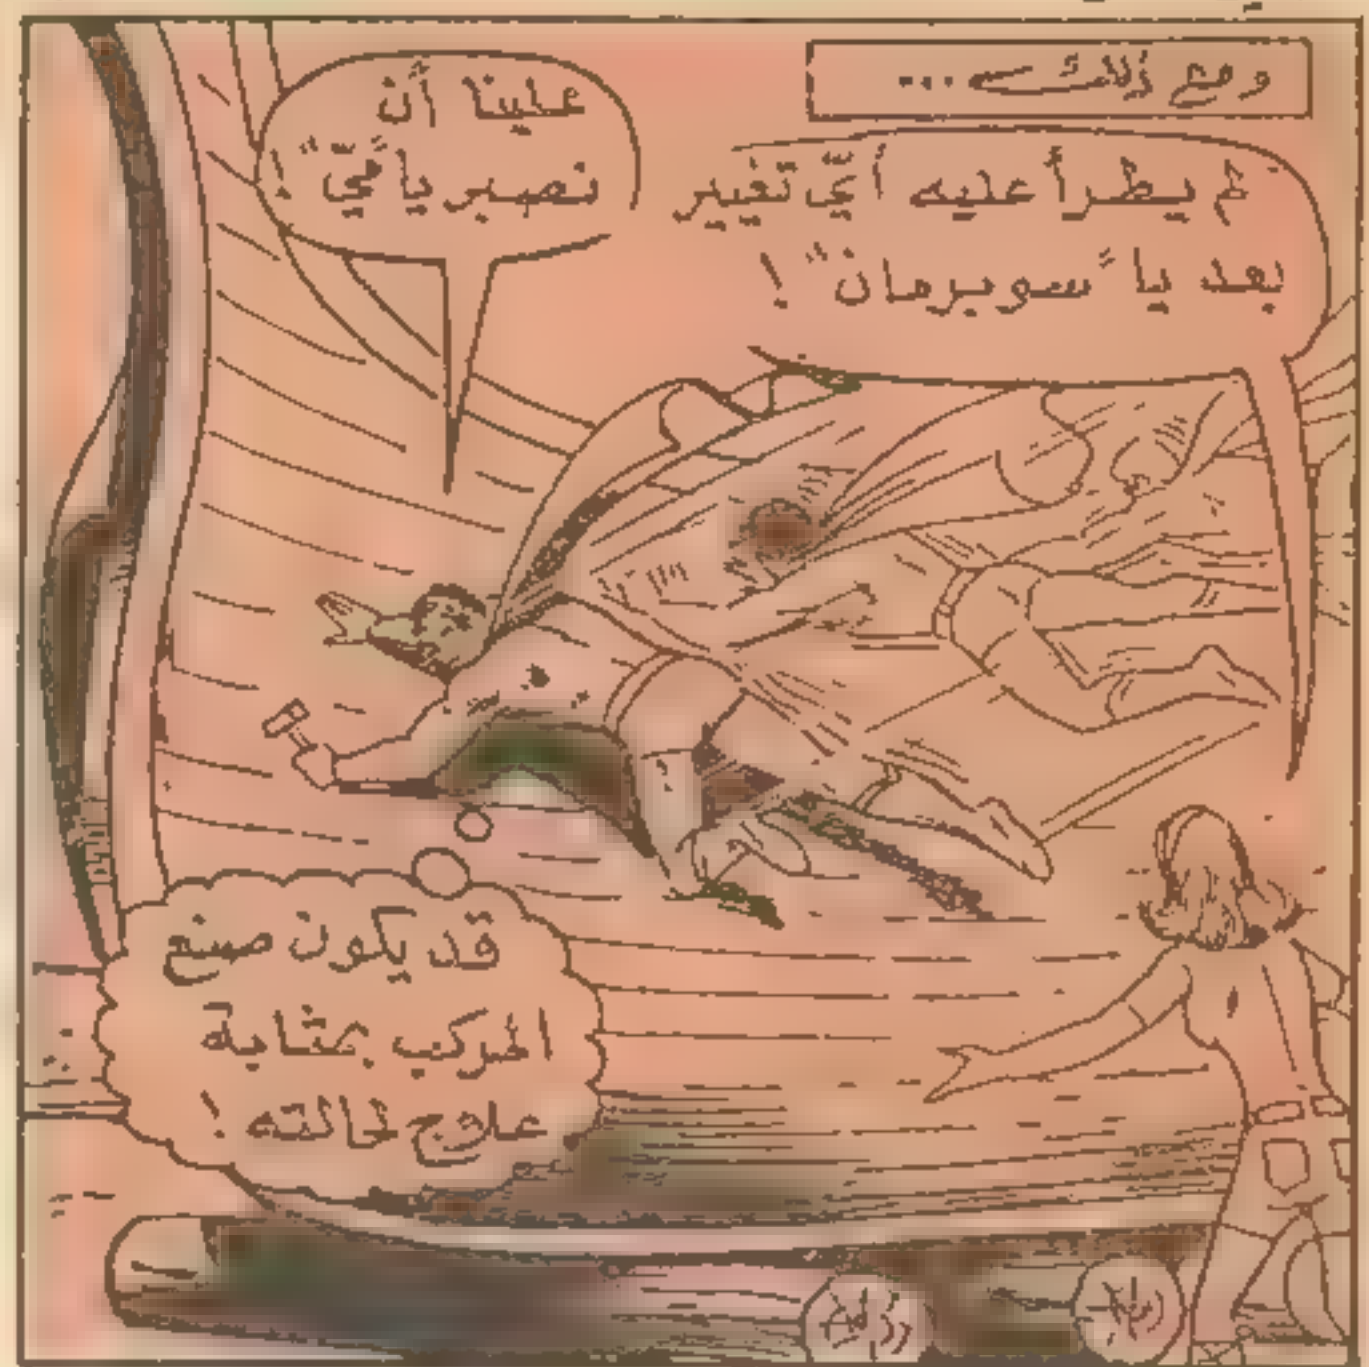 ومع ذلك ...
لم يطرأ عليه أيّ تغيير
بعد يا "سوبرمان" !
علينا أن
نصبر يا "ميّ" !
قد يكون صنع
المركب بمثابة
علاج لحالته !